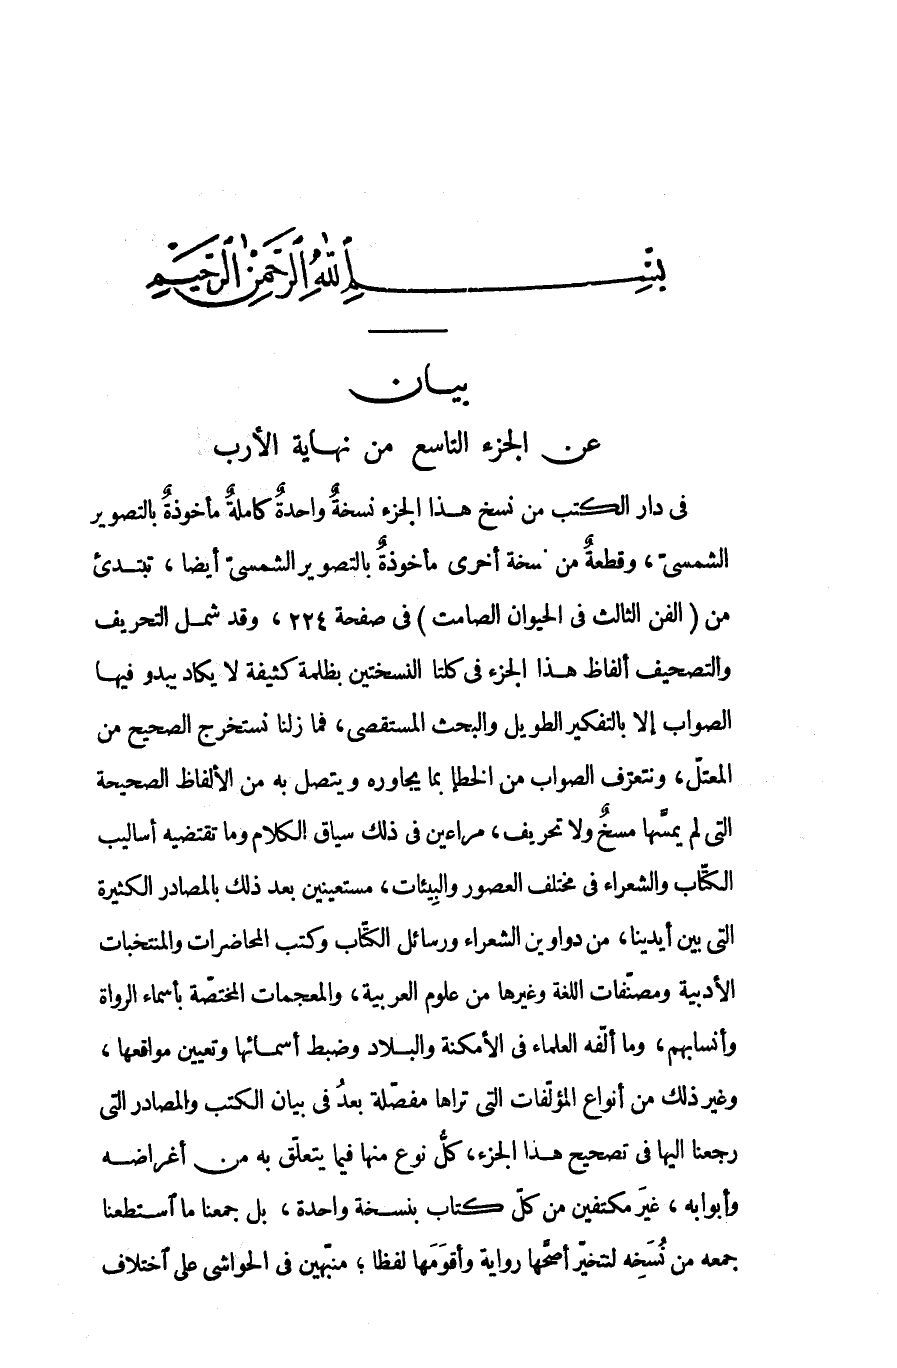 بِسْمِ اللهِ الرَّحْمٰنِ الرَّحِيمِ
بيان
عن الجزء التاسع من نهاية الأرب
فى دار الكتب من نسخ هذا الجزء نسخةٌ واحدةٌ كاملةٌ مأخوذةٌ بالتصوير
الشمسىّ، وقطعةٌ من نسخة أخرى مأخوذةٌ بالتصوير الشمسىّ أيضا، تبتدئ
من (الفن الثالث فى الحيوان الصامت) فى صفحة ٢٢٤، وقد شمل التحريف
والتصحيف ألفاظ هذا الجزء فى كلتا النسختين بظلمة كثيفة لا يكاد يبدو فيها
الصواب إلا بالتفكير الطويل والبحث المستقصى، فما زلنا نستخرج الصحيح من
المعتلّ، ونتعرّف الصواب من الخطإ بما يجاوره ويتصل به من الألفاظ الصحيحة
التى لم يمسَّها مسخٌ ولا تحريف، مراعين فى ذلك سياق الكلام وما تقتضيه أساليب
الكتّاب والشعراء فى مختلف العصور والبِيئات، مستعينين بعد ذلك بالمصادر الكثيرة
التى بين أيدينا، من دواوين الشعراء ورسائل الكتّاب وكتب المحاضرات والمنتخبات
الأدبية ومصنّفات اللغة وغيرها من علوم العربية، والمعجمات المختصّة بأسماء الرواة
وأنسابهم، وما ألّفه العلماء فى الأمكنة والبلاد وضبط أسمائها وتعيين مواقعها،
وغير ذلك من أنواع المؤلّفات التى تراها مفصّلة بعدُ فى بيان الكتب والمصادر التى
رجعنا اليها فى تصحيح هذا الجزء، كلُّ نوع منها فيما يتعلّق به من أغراضه
وأبوابه، غيرَ مكتفين من كلّ كتاب بنسخة واحدة، بل جمعنا ما ٱستطعنا
جمعه من نُسَخِه لنتخيّر أصحَّها رواية وأقوَمَها لفظا؛ منبّهين فى الحواشى على ٱختلاف